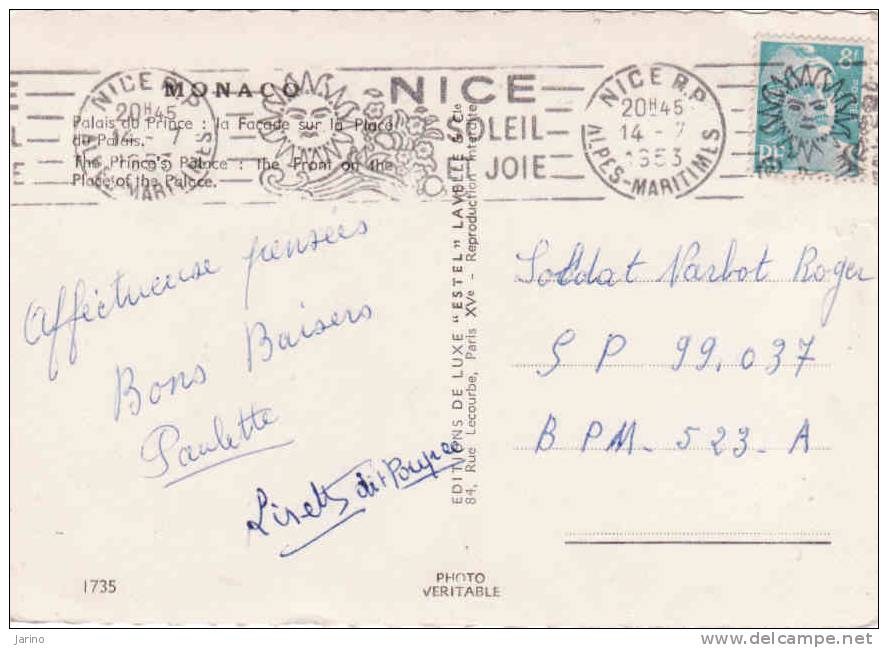 MONACO
Palais du Prince : la Façade sur la Place
du Palais.
The Prince's Palace : the Front on the
Place of the Palace.
NICE R.P.
20H45
14 - 7
ALPES-MARITIMES
NICE
SOLEIL
ET JOIE
NICE R.P.
20H45
14 - 7
1953
ALPES-MARITIMES
8f
Afféctueuse pensées
Bons Baisers
Paulette
Lisette dit Poupée
EDITIONS DE LUXE "ESTEL" LAVELLE & Cie
84, Rue Lecourbe, Paris XVe - Reproduction interdite
Soldat Narbot Roger
S P 99.037
B P M - 523 - A
1735
PHOTO
VERITABLE
Jarino
www.delcampe.net